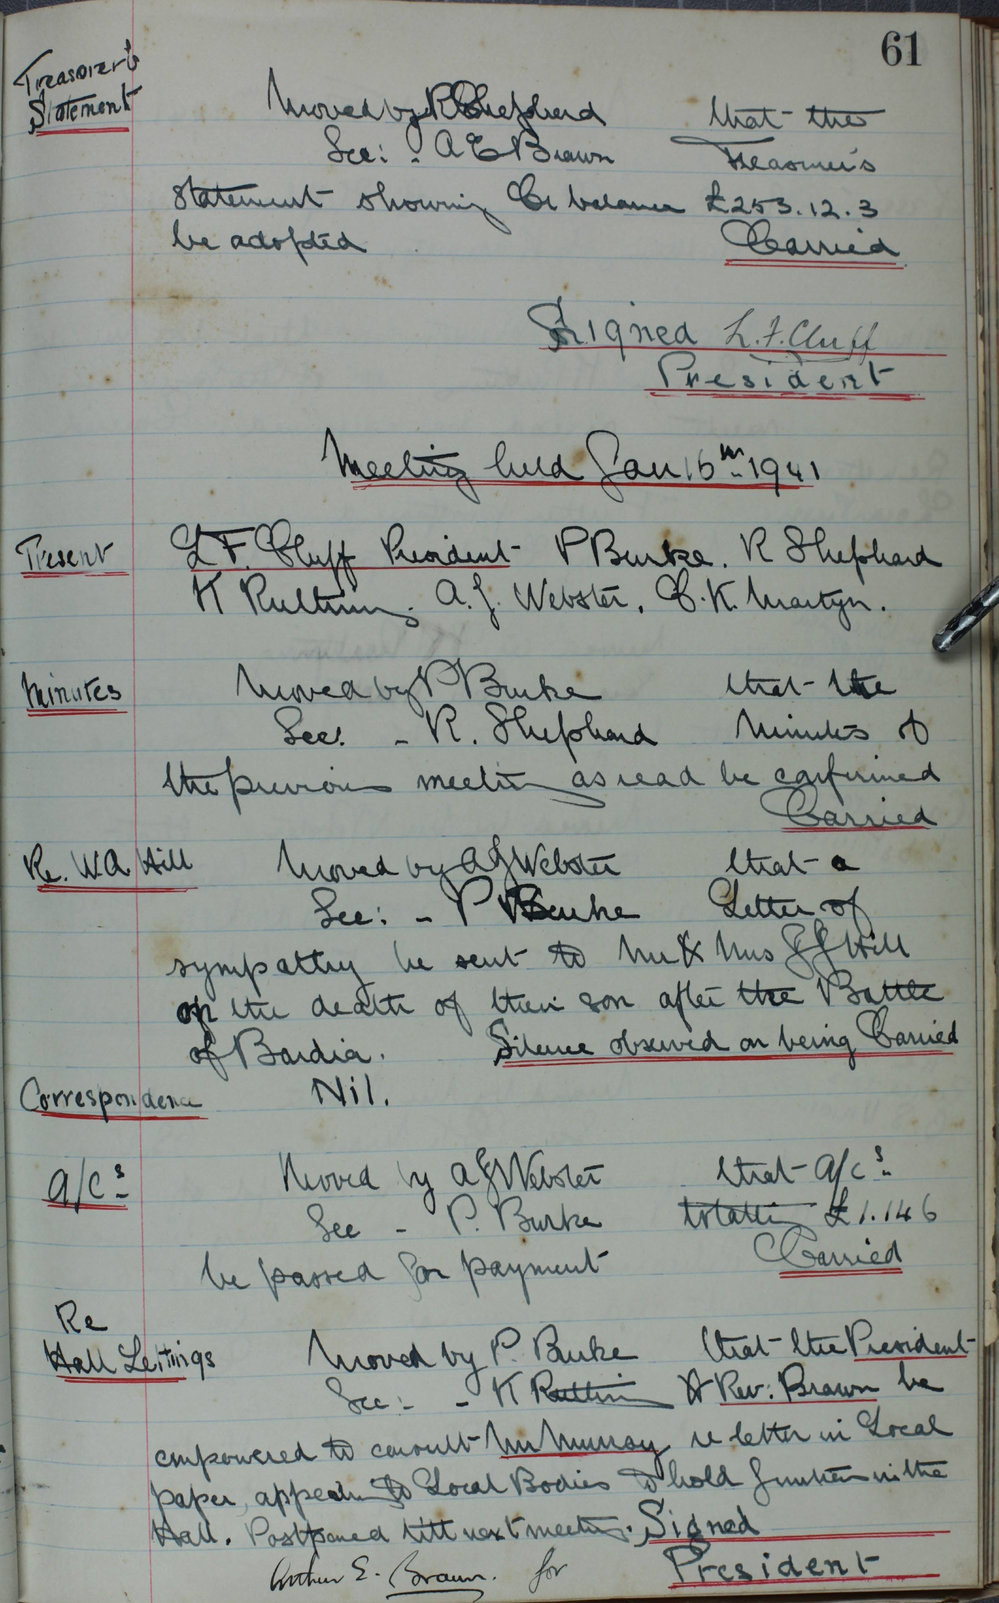 61
Treasurer's
Statement
Moved by R Shephard that the
Sec: - A E Brown Treasurer's
statement showing Cr balance £253.12.3
be adopted Carried
Signed L. F. Cluff
President
Meeting held Jan 16th 1941
Present L F. Cluff President P Burke. R Shephard
K Rultinn. A. J. Webster. C. K. Martyn.
Minutes Moved by P Burke that the
Sec: - R. Shephard Minutes of
the previous meeting as read be confirmed
Carried
Re. W A Hill Moved by A J Webster that a
Sec: - P Burke Letter of
sympathy be sent to Mr & Mrs J J Hill
on the death of their son after the Battle
of Bardia. Silence observed on being Carried
Correspondence Nil.
A/cs Moved by A J Webster that A/cs
Sec - P. Burke totalling £1.14.6
be passed for payment Carried
Re
Hall Lettings Moved by P. Burke that the President
Sec: - K & Rev: Brown be
empowered to consult Mr Murray re letter in Local
paper, appealing to Local Bodies to hold functions in the
Hall. Postponed till next meeting. Signed
Arthur E. Brown. for President